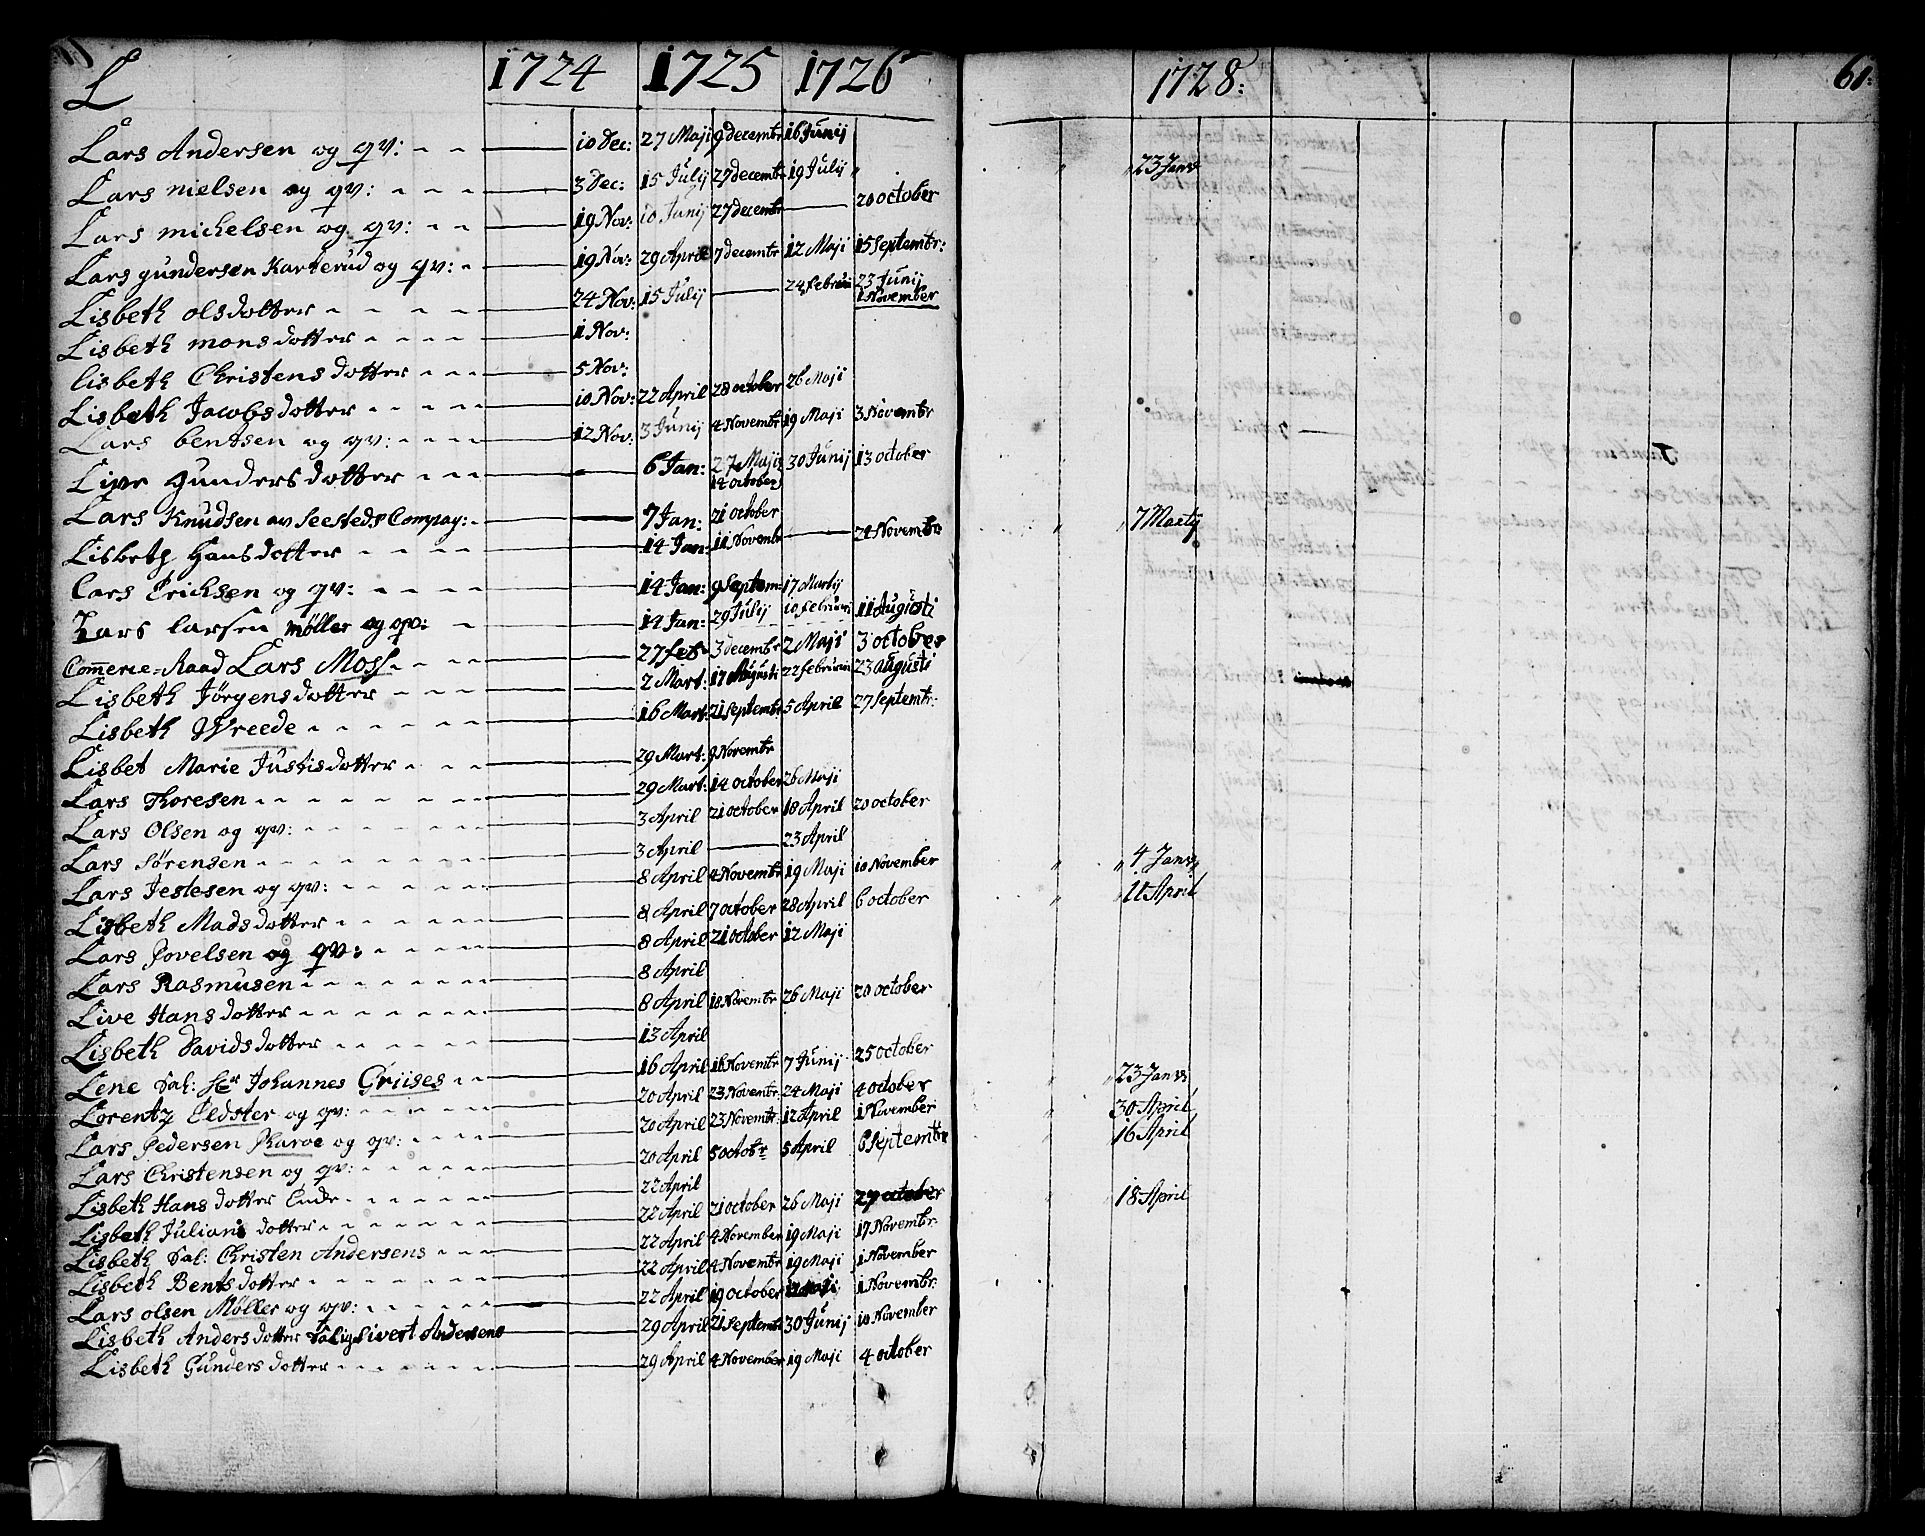 L 1724 1725 1726 1728: 61:
Lars Andersen og qv: 10 Dec: 27 Maji 9 decembr 16 Junij
Lars nielsen og qv: 3 Dec: 15 Julij 27 decembr 19 Julij 23 Janv
Lars michelsen og qv: 19 Nov: 10 Junij 27 decembr 20 october
Lars gundersen Karterud og qv: 19 Nov: 29 April 7 decembr 12 Maji 15 Septembr:
Lisbeth olsdotter 24 Nov: 15 Julij 24 februarii 23 Junij 1 November
Lisbeth monsdotter 1 Nov:
lisbeth Christensdotter 5 Nov:
Lisbeth Jacobsdotter 10 Nov: 22 April 28 october 26 Maji
Lars bentsen og qv: 12 Nov: 3 Junij 4 Novembr 19 Maji 3 Novembr
Live gundersdotter 6 Jan: 27 Maji 14 october 30 Junij 13 october
Lars Knudsen av Seesteds Compag: 7 Jan: 21 october 7 Martij
Lisbeth Hansdotter 14 Jan: 11 Novembr 24 Novembr
Lars Erichsen og qv: 14 Jan: 9 Septem: 17 Martij
Lars larsen møller og qv: 14 Jan: 29 Julij 10 februarii 11 Augusti
Commerce-Raad Lars Moss 27 feb 3 decembr 2 Maji 3 october
Lisbeth Jørgensdotter 2 Mart: 17 Augusti 22 februarii 23 augusti
Lisbeth Wreede 16 Mart: 21 Septembr 5 April 27 Septembr:
Lisbet Marie Justisdotter 29 Mart: 9 Novembr
Lars Thoresen 29 Mart: 14 october 26 Maji
Lars Olsen og qv: 3 April 21 october 18 April 20 october
Lars Sørensen 3 April 23 April
Lars Jeslesen og qv: 8 April 4 Novembr 19 Maji 10 November 4 Janv
Lisbeth Madsdotter 8 April 7 october 28 April 6 october 11 April
Lars Povelsen og qv: 8 April 21 october 12 Maji
Lars Rasmusen 8 April
Live Hansdotter 8 April 18 Novembr 26 Maji 20 october
Lisbeth Davidsdotter 13 April
Lene Sal: Hr Johannes Griises 16 April 16 Novembr 7 Junij 25 october 23 Janv
Lorentz Eldster og qv: 20 April 23 Novembr: 24 Maji 4 october 30 April
Lars Pedersen Skaroe og qv: 20 April 23 Novembr: 12 April 1 November 16 April
Lars Christensen og qv: 20 April 5 octobr 5 April 6 Septembr
Lisbeth Hansdotter Ende 22 April 18 April
Lisbeth Julians dotter 22 April 21 october 26 Maji 27 october
Lisbeth Sal: Christen Andersens 22 April 4 November 19 Maji 17 Novembr:
Lisbeth Bentsdotter 22 April 4 Novembr 19 Maji 1 November
Lars olsen Møller og qv: 22 April 19 october 12 Maji 1 Novembr:
Lisbeth Andersdotter Salig Sivert Andersens 29 April 21 Septembr 30 Junij 10 November
Lisbeth Gundersdotter 29 April 4 November 19 Maji 4 october